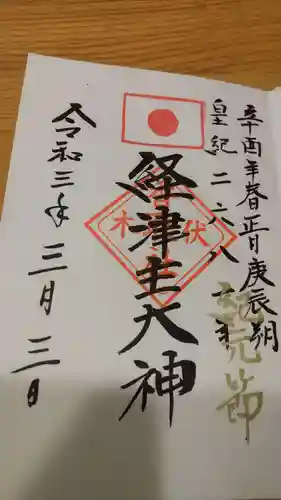 辛酉年春正月庚辰朔
皇紀二六八
紀元節
経津主大神
木
伏
令和三年三月三日